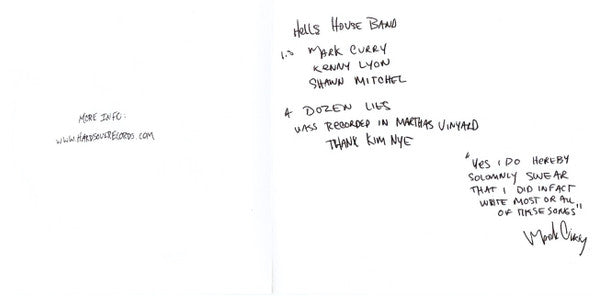 MORE INFO:
WWW.HARDSOULRECORDS.COM
HELLS HOUSE BAND
IS MARK CURRY
KENNY LYON
SHAWN MITCHEL
A DOZEN LIES
WASS RECORDED IN MARTHAS VINYARD
THANK KIM NYE
"YES I DO HEREBY
SOLOMNLY SWEAR
THAT I DID INFACT
WRITE MOST OR ALL
OF THESE SONGS"
Mark Curry